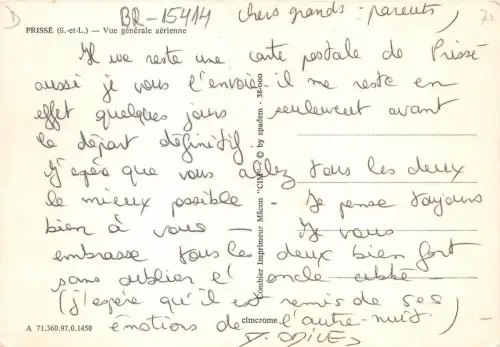 BR-15414
chers grands-parents,
PRISSÉ (S.-et-L.) — Vue générale aérienne
Il me reste une carte postale de Prissé
aussi je vous l'envoie - il me reste en
effet quelques jours seulement avant
le départ définitif.
J'espère que vous allez tous les deux
le mieux possible - Je pense toujours
bien à vous - Je vous
embrasse tous les deux bien fort
sans oublier l'oncle abbé -
(j'espère qu'il est remis de ses
émotions de l'autre nuit.)
Combier Imprimeur Mâcon "CIM" © by spadem - 38-000
cimcrome
A 71.360.97.0.1450